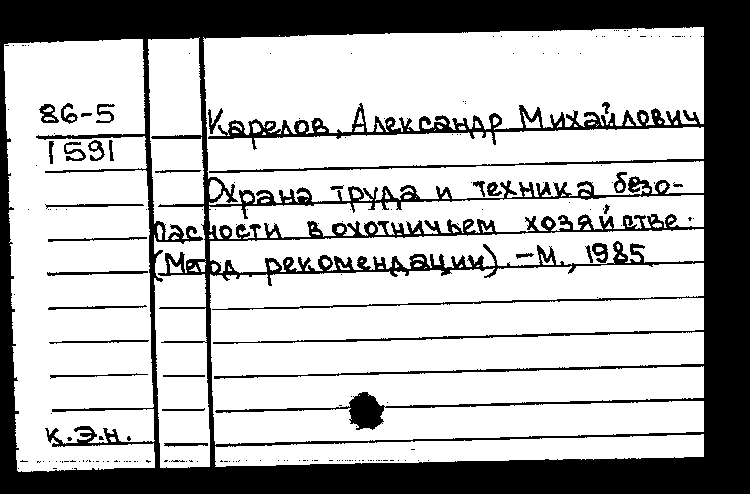 86-5
1591
Карелов, Александр Михайлович
Охрана труда и техника безо-
пасности в охотничьем хозяйстве.
(Метод. рекомендации). - М., 1985
к.э.н.